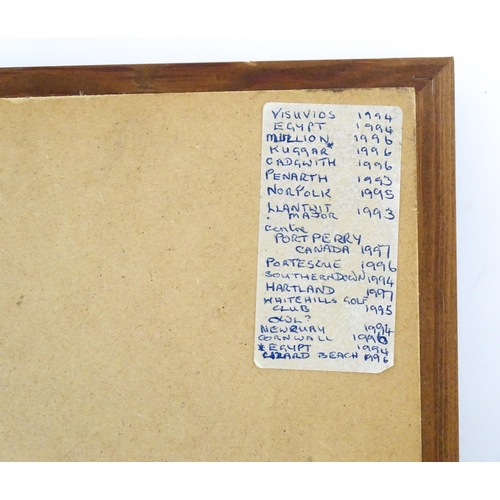 VISUVIOS 1994
EGYPT 1994
MULLION 1996
KUGGAR* 1996
CADGWITH 1996
PENARTH 1993
NORFOLK 1995
LLANTWIT
MAJOR 1993
centre
PORT PERRY
CANADA 1997
PORTESCUE 1996
SOUTHERNDOWN 1994
HARTLAND 1997
WHITEHILLS GOLF
CLUB 1995
OWL?
NEWQUAY 1994
CORNWALL 1996
*EGYPT 1994
LIZARD BEACH 1996